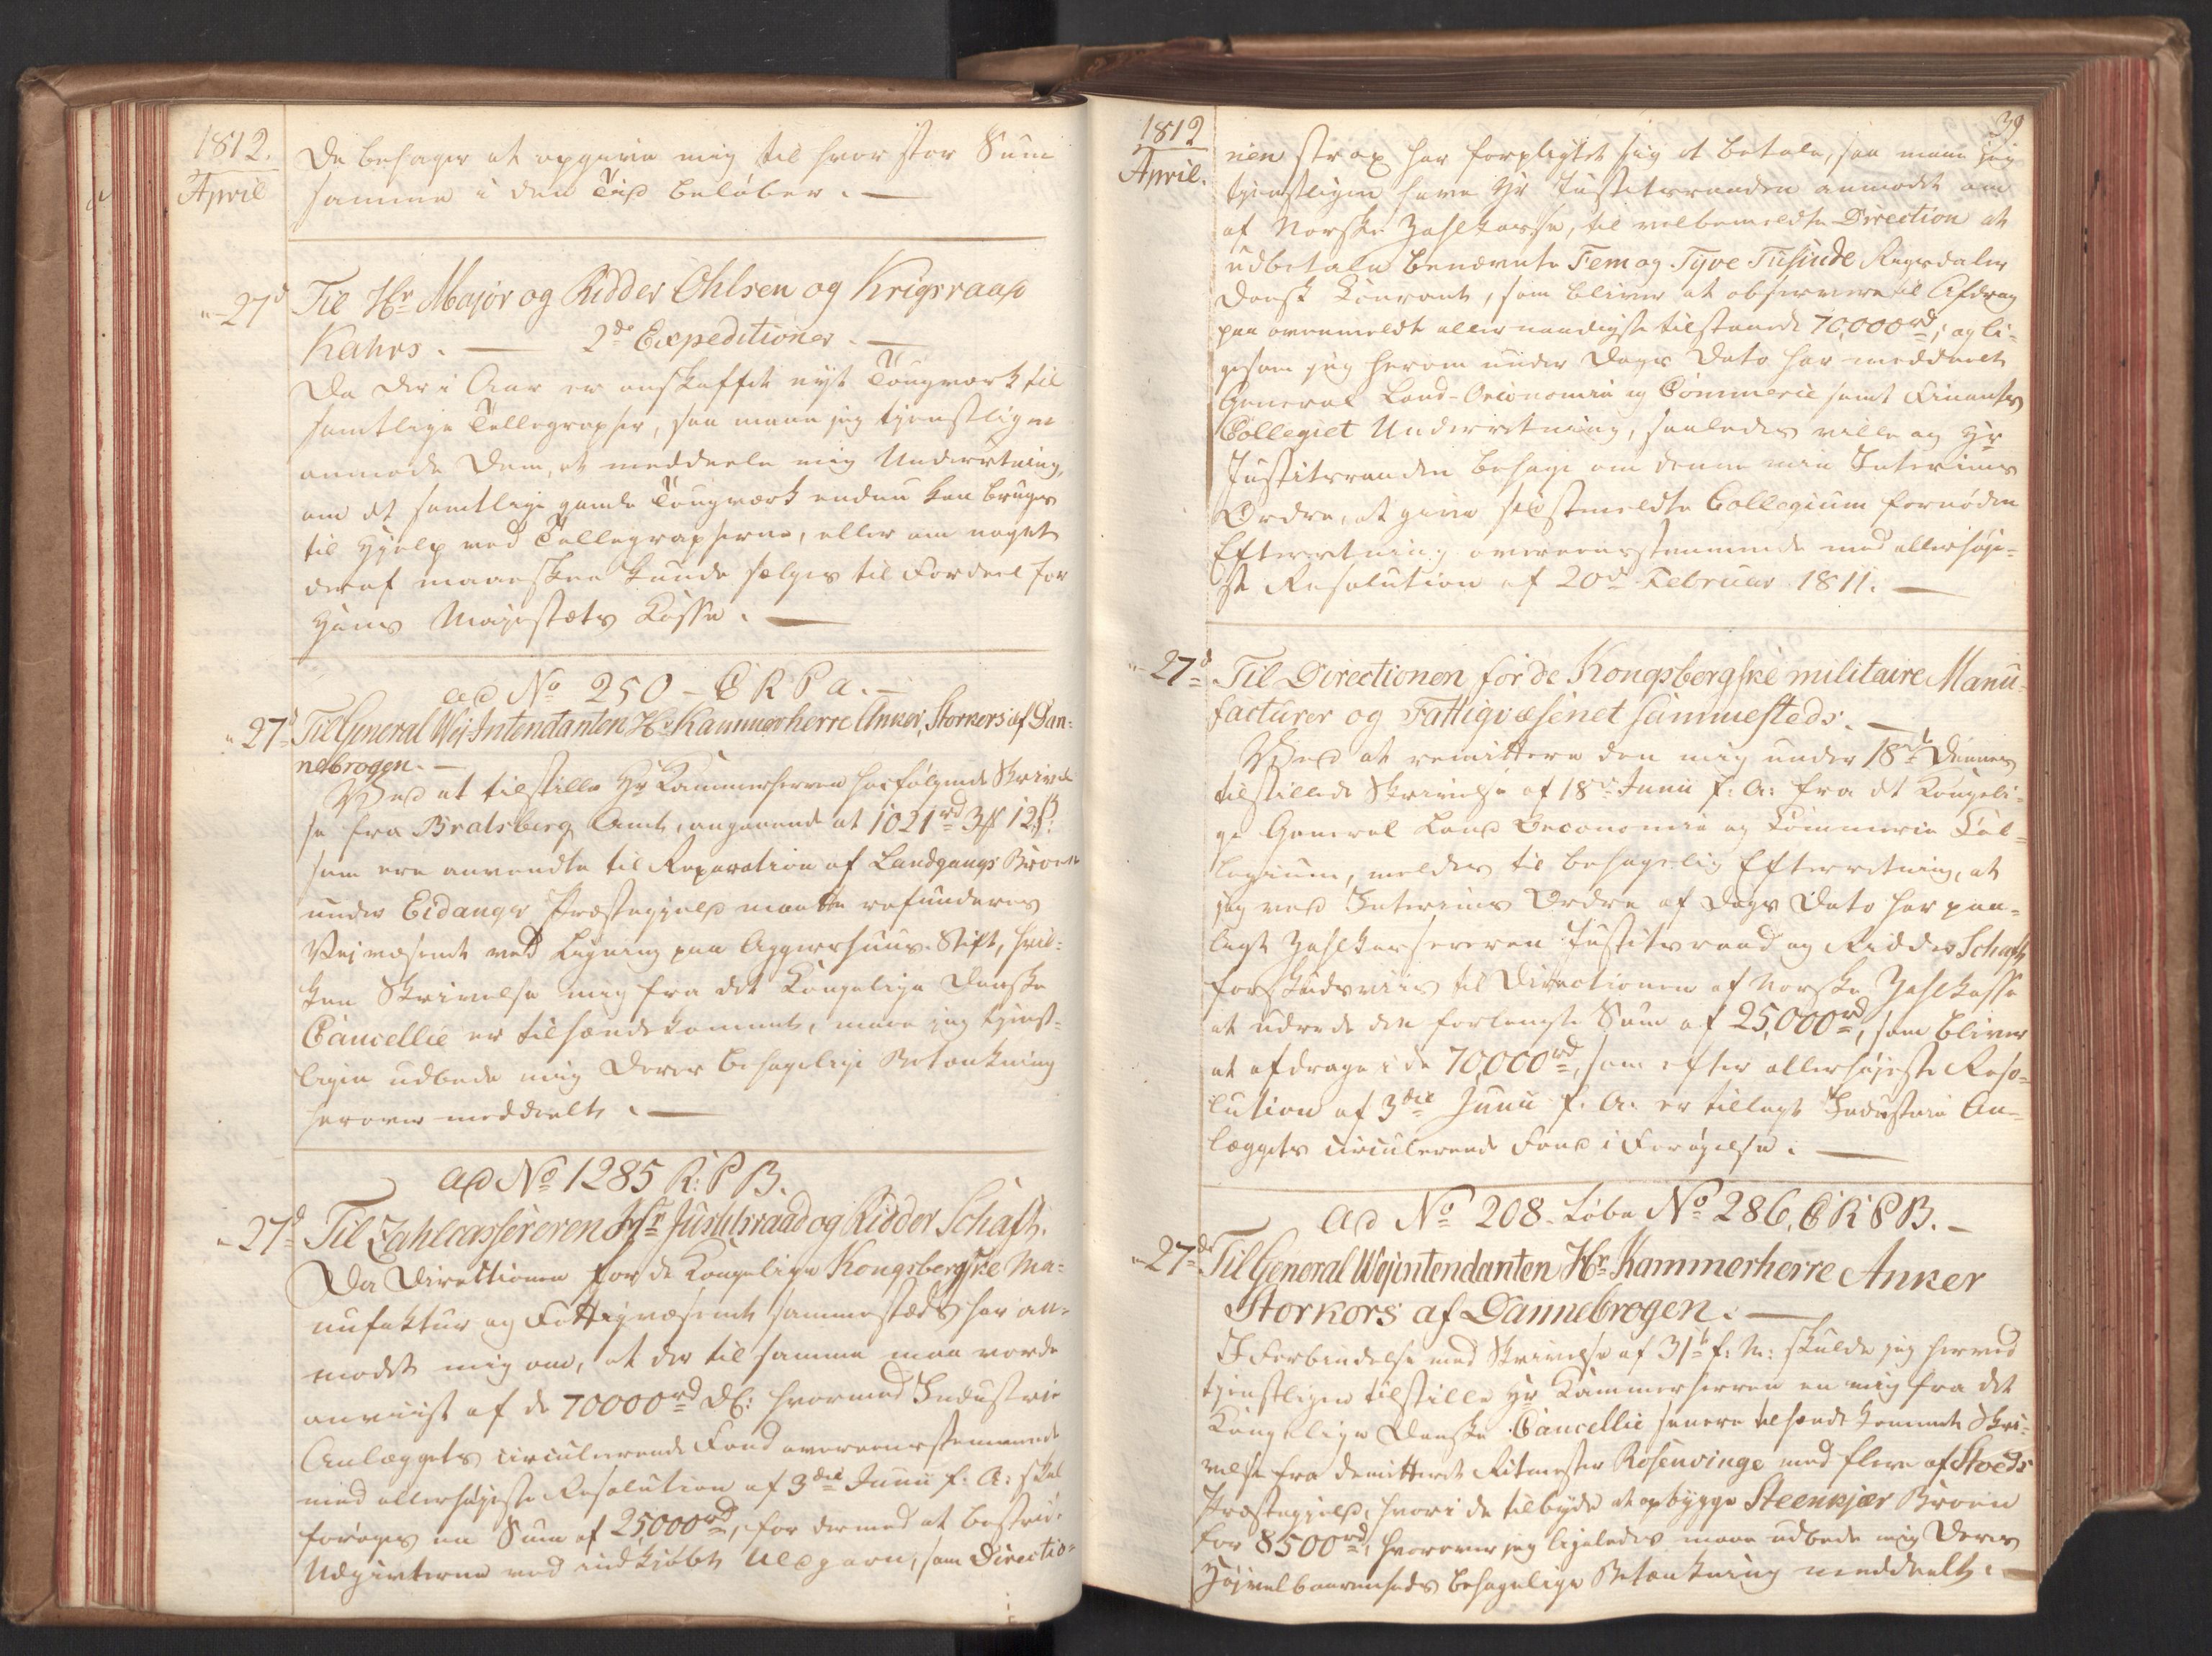 1812.
April
De behager at opgive mig til hvor stor Sum
samme i den Tid beløber. —
"-27d Til Hr Major og Ridder Ohlsen og Krigsraad
Kahrs. — 2de Expeditioner. —
Da der i Aar er anskaffet nyt Tougværk til
samtlige Tellegrapher, saa maae jeg tjenstligen
anmode Dem, at meddeele mig Underretning,
om det samtlige gamle Tougværk endnu kan bruges
til Hjelp ved Tellegrapherne, eller om noget
deraf maaeskee kunde sælges til Fordeel for
Hans Majestæts Casse. —
ad No 250 - C R P A. —
"27d Til General Vej-Intendanten Hr Kammerherre Anker, Storkors af Dan-
nebrogen. —
Ved at tilstille Hr Kammerherren hosfølgende Skrivel
se fra Bratsberg Amt, angaaende at 1021rd 3# 12ß:
som ere anvendte til Reparation af Landgangs Broen
under Eidanger Præstegjeld maatte refunderes
Vejvæsenet ved Ligning paa Aggershuus Stift, hvil-
ken Skrivelse mig fra det Kongelige Danske
Cancellie er tilhændekommet, maae jeg tjenst-
ligen udbede mig Deres behagelige Betænkning
herover meddeelt. —
ad No 1285 R: P B.
"27d Til Zahlcasséreren Hr Justitsraad og Ridder Schaft.
Da Direktionen for de Kongelige Kongsbergske Ma-
nufaktur og Fattigvæsenet sammesteds har an-
modet mig om, at der til samme maa vorde
anviist af de 70000rd DC: hvormed Industrie
Anlæggets circulerende Fond overeensstemmende
med allerhøjeste Resolution af 3die Junii f: A: skal
forøges en Sum af 25000rd, for dermed at bestride
Udgivterne ved indkjøbt Uldgarn, som Directio-
1812
April.
39
nen strax har forpligtet sig at betale, saa maae jeg
tjenstligen have Hr Justitsraaden anmodet om
af Norske Zahlkasse, til velbemeldte Direction at
udbetale benævnte Fem og Tyve Tusinde Rigsdaler
Dansk Courant, som bliver at observere til Afdrag
paa ovenmeldte allernaadigst tilstaaede 70,000rd; og li-
gesom jeg herom under Dags Dato har meddeelt
General Land-Oeconomie og Commerce samt Finants
Collegiet Underretning, saaledes ville og Hr
Justitsraaden behage om denne min Interims
Ordre, at give sidstmeldte Collegium fornøden
Efterretning overeensstemmende med allerhøje-
ste Resolution af 20de Februar 1811. —
"-27d Til Directionen for de Kongsbergske militaire Manu-
facturer og Fattigvæsenet sammesteds. —
Ved at remittere den mig under 18de Dennes
tilstillede Skrivelse af 18de Junii f: A: fra det Kongeli-
ge General Land Oeconomie og Commerce Col-
legium, meldes til behagelig Efterretning, at
jeg ved Interims Ordre af Dags Dato har paa-
lagt Zahlkasserer Justitsraad og Ridder Schaft
forskudsviis til Directionen af Norske Zahlkasse
at udrede den forlangte Sum af 25,000rd, som bliver
at afdrage i de 70,000rd, som efter allerhøjeste Reso-
lution af 3die Junii f: A: er tillagt Industrie An-
læggets circulerende Fond i Forøgelse. —
Ad No 208. Løbe No 286, C R P B. —
"-27de Til General Vejintendanten Hr Kammerherre Anker
Storkors af Dannebrogen. —
I Forbindelse med Skrivelse af 31te f: M: skulde jeg herved
tjenstligen tilstille Hr Kammerherren en mig fra det
Kongelige Danske Cancellie senere tilhændekommet Skri-
velse fra demitteret Ritmester Rosenvinge med flere af Stoeds
Præstegjeld, hvori de tilbyde at opbygge Steenkjær Broen
for 8500rd, hvorover jeg ligeledes maae udbede mig Deres
Højvelbaarenheds behagelige Betænkning meddeelt. —